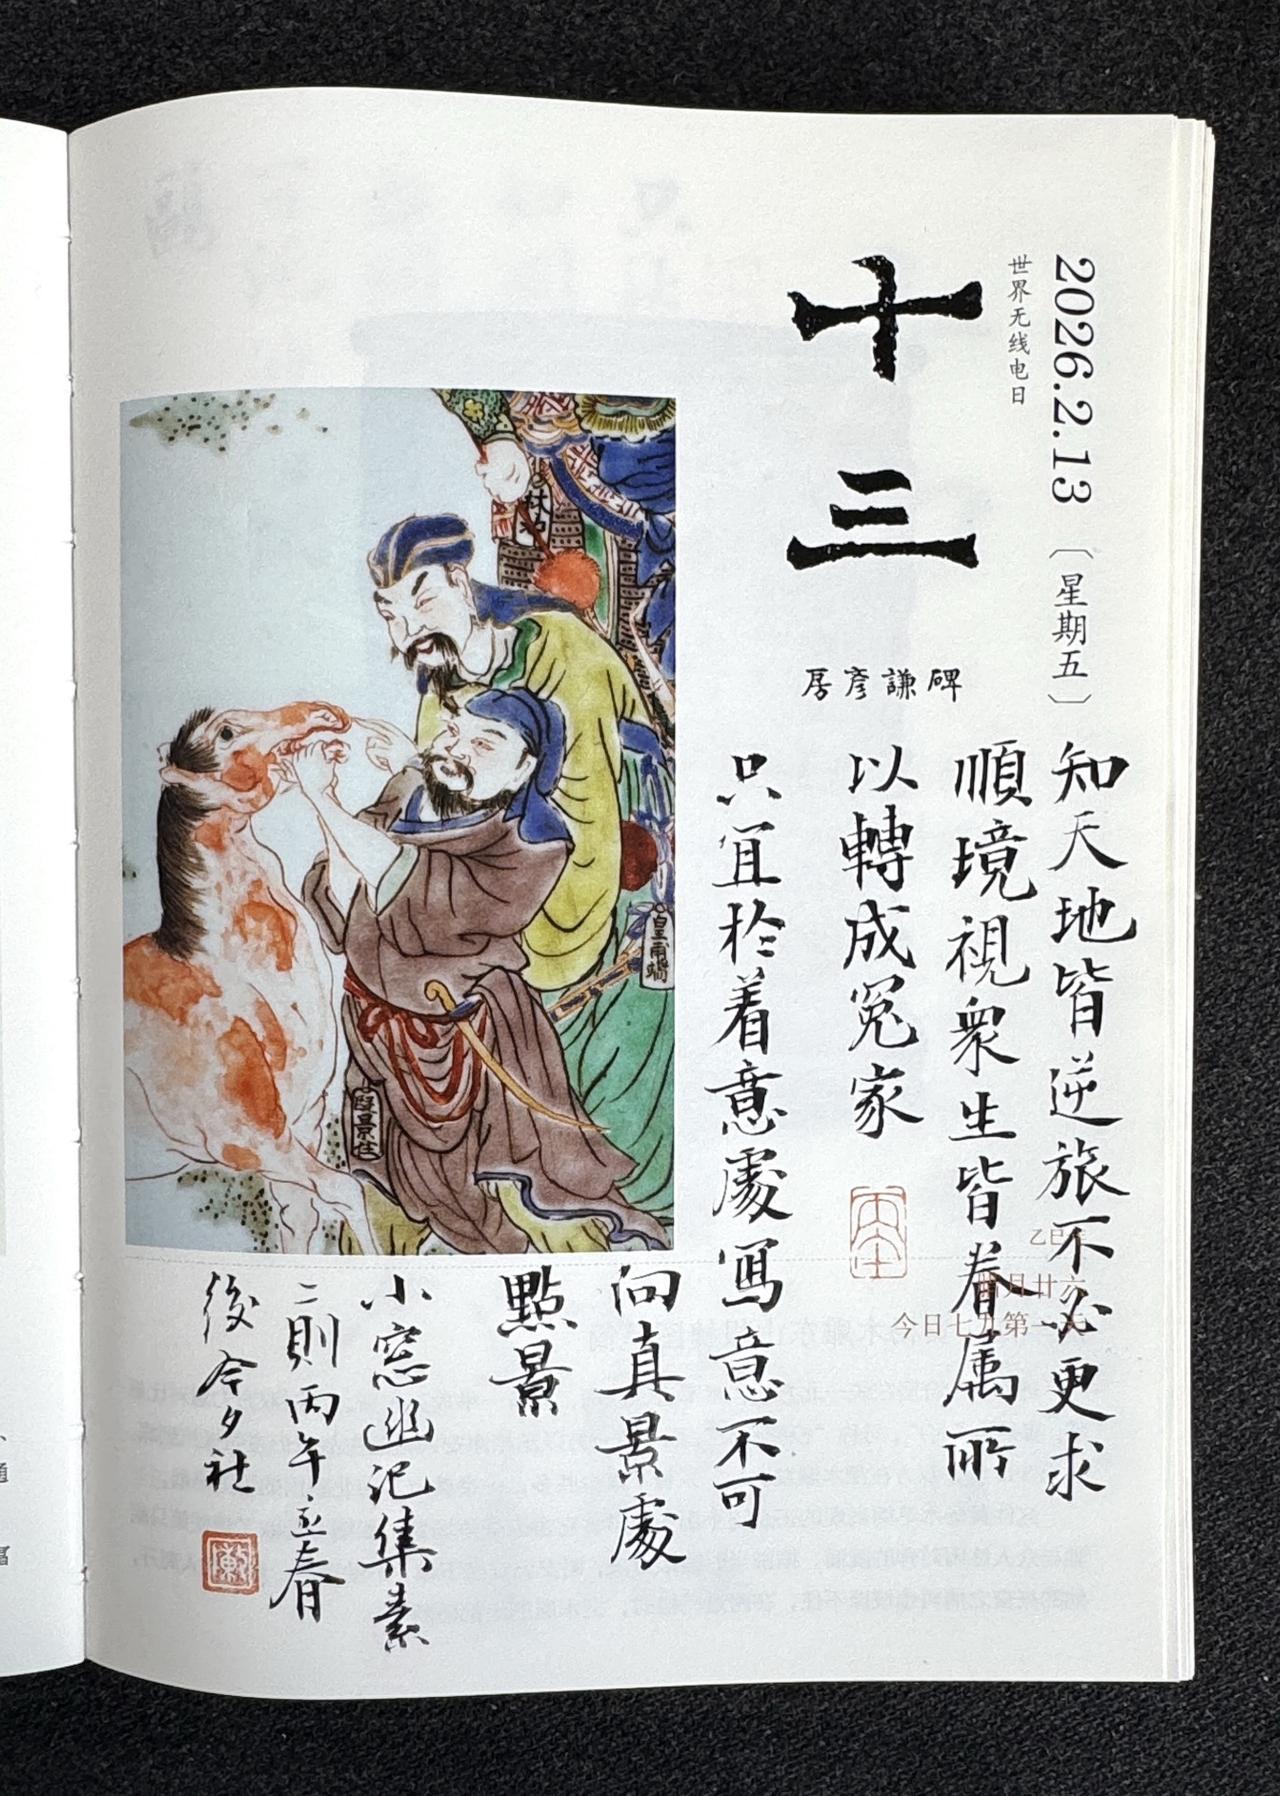 2026.2.13〔星期五〕
世界无线电日
十三
房彦謙碑
知天地皆逆旅不必更求
順境視衆生皆眷属所
以轉成冤家
只宜於着意處写意不可
向真景處
點景
小窓幽记集素
二則丙午立春
後今夕社
乙巳年
腊月廿六
今日七九第一天
皇甫端